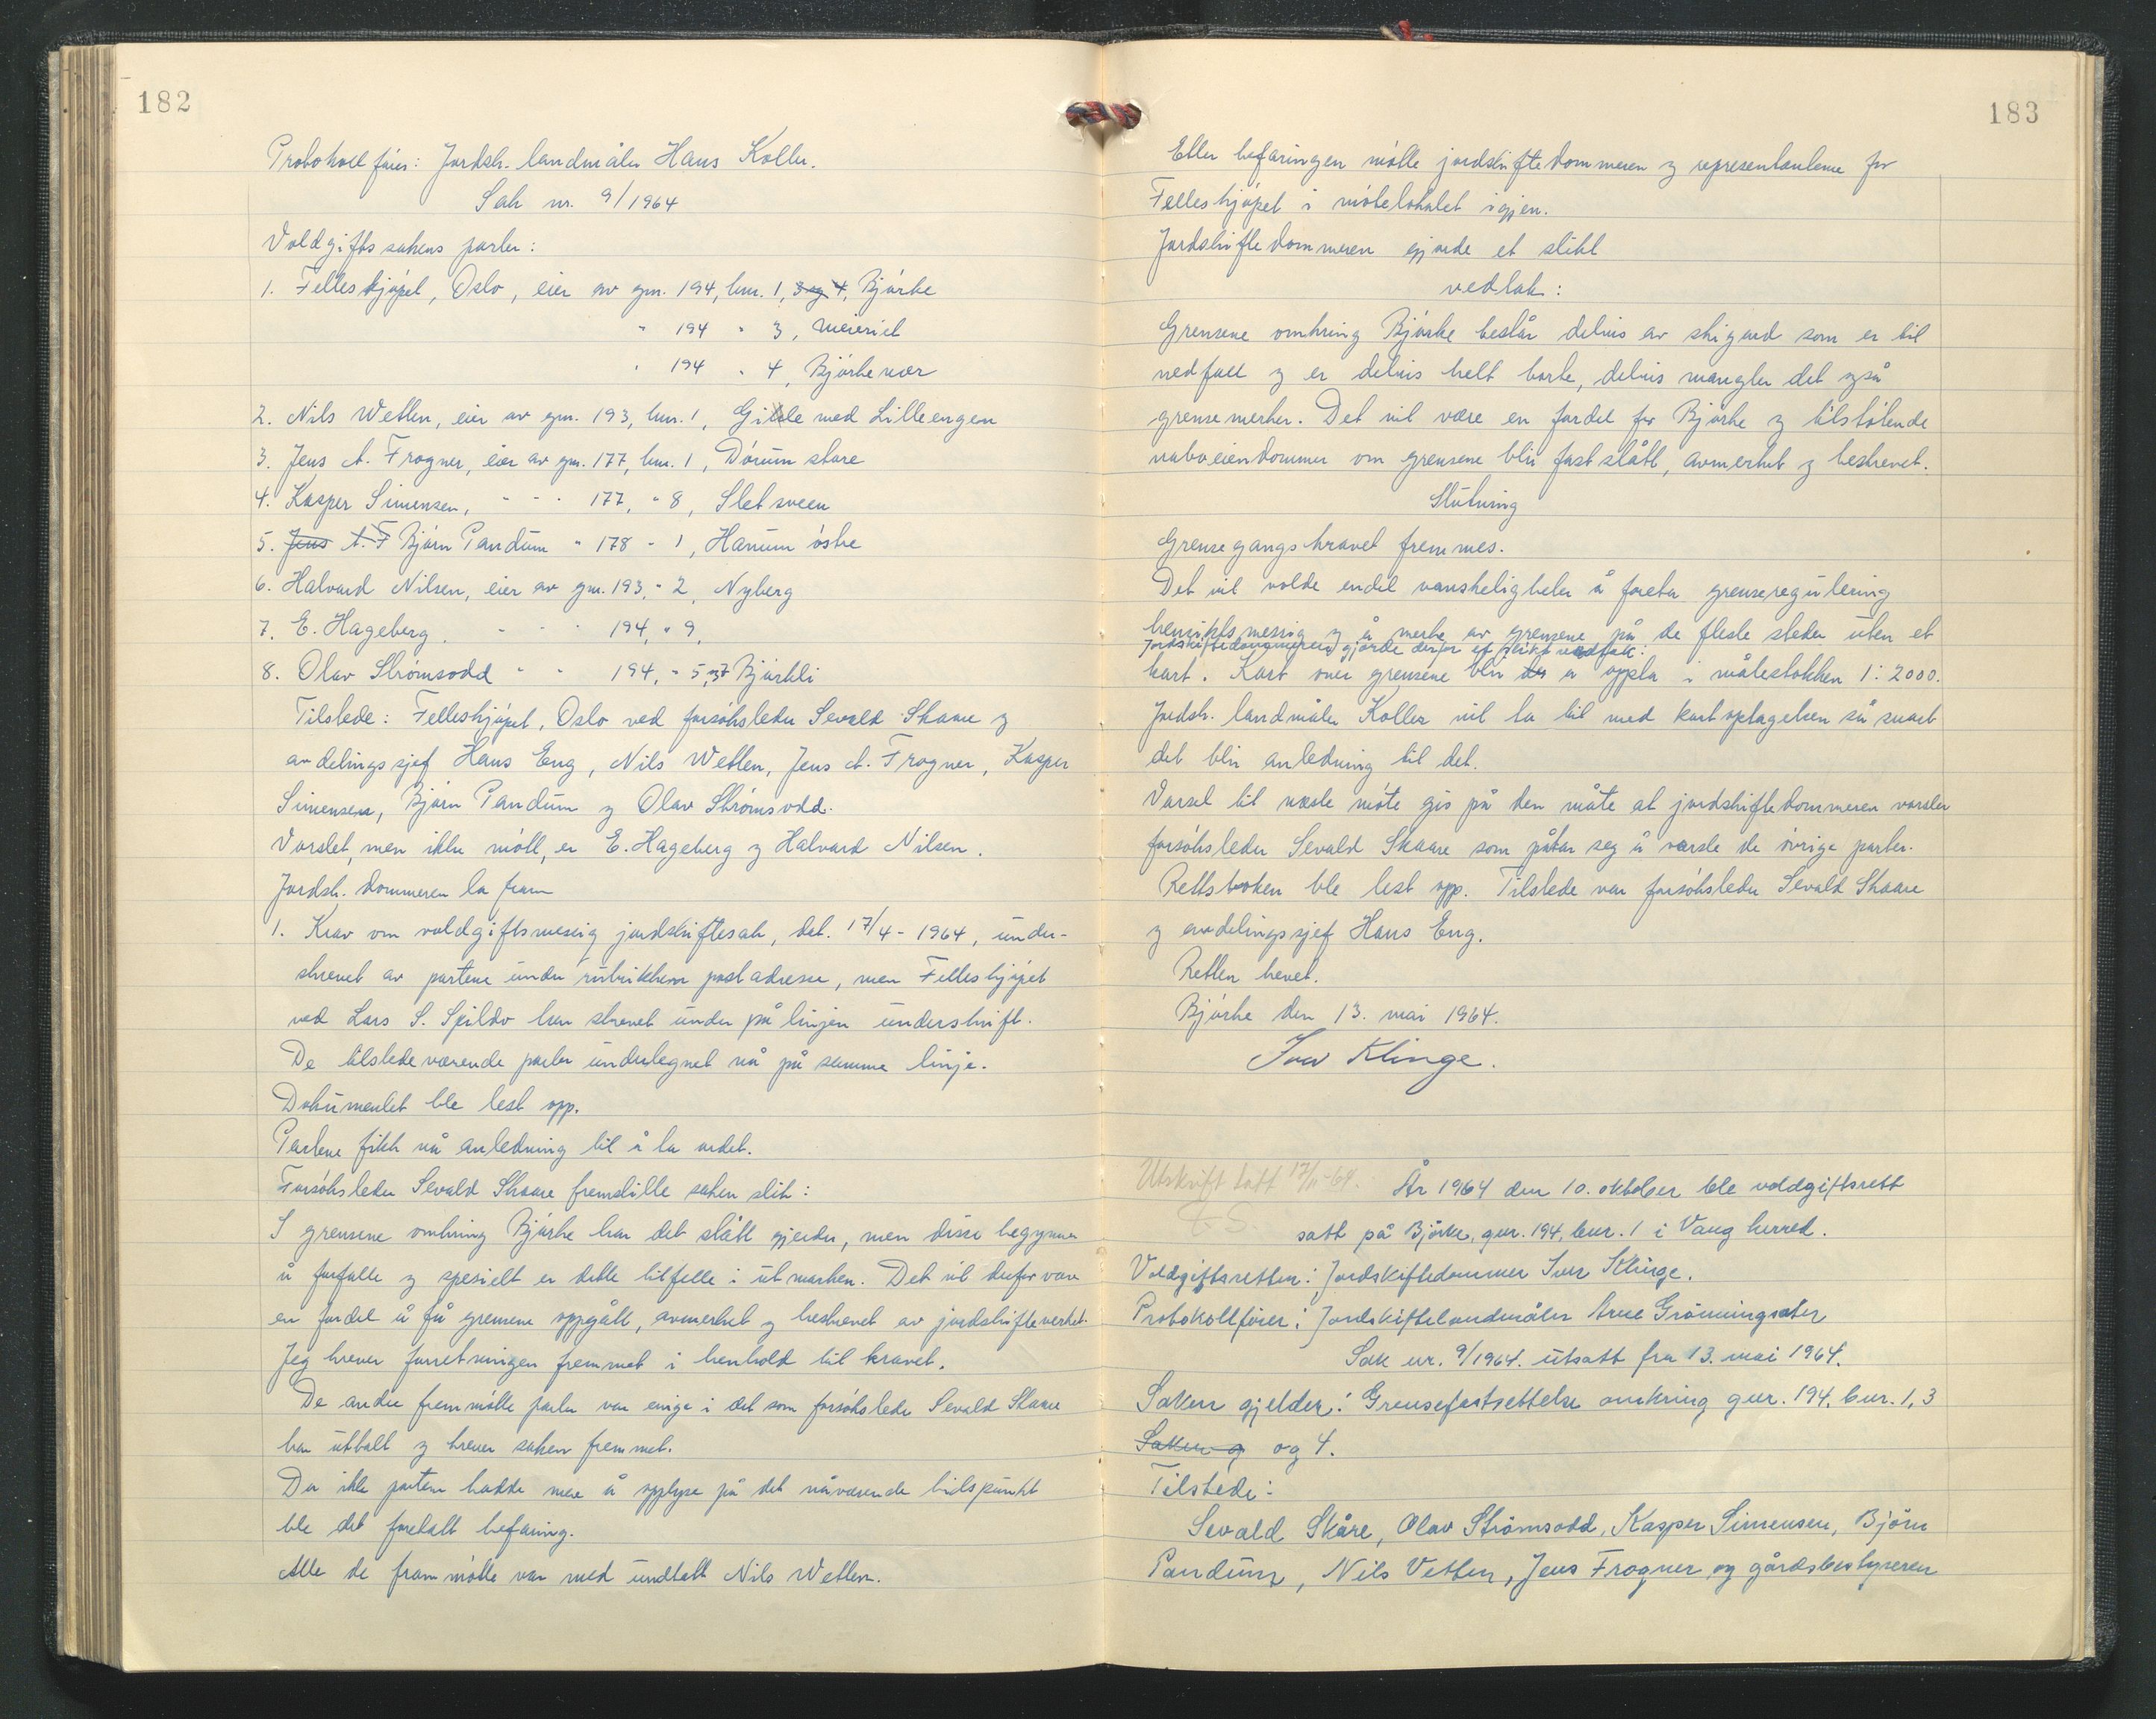 182
Protokollfører: Jordsk. landmåler Hans Koller.
Sak nr. 9/1964
Voldgiftssakens parter:
1. Felleskjøpet, Oslo, eier av gnr. 194, bnr. 1, 3 og 4, Bjørke
" 194 " 3, Meieriet
" 194 " 4, Bjørkenær
2. Nils Wetten, eier av gnr. 193, bnr. 1, Gile med Lilleengen
3. Jens A. Frogner, eier av gnr. 177, bnr. 1, Dørum store
4. Kasper Simensen, " - " 177, " 8, Sletsveen
5. Jens A. F Bjørn Pandum " 178 " 1, Hanum østre
6. Halvard Nilsen, eier av gnr. 193, " 2, Nyberg
7. E. Hageberg, " " " 194, " 9,
8. Olav Strømsodd " " 194, " 5, 37 Bjørkli
Tilstede: Felleskjøpet, Oslo ved forsøksleder Sevald Skaare og
avdelingssjef Hans Eng, Nils Wetten, Jens A. Frogner, Kasper
Simensen, Bjørn Pandum og Olav Strømsodd.
Varslet, men ikke møtt, er E. Hageberg og Halvard Nilsen.
Jordsk. dommeren la fram
1. Krav om voldgiftsmessig jordskiftesak, dat. 17/4 - 1964, under-
skrevet av partene under rubrikken postadresse, men Felleskjøpet
ved Lars S. Spildo har skrevet under på linjen underskrift.
De tilstedeværende parter undertegnet nå på samme linje.
Dokumentet ble lest opp.
Partene fikk nå anledning til å ta ordet.
Forsøksleder Sevald Skaare fremstilte saken slik:
I grensene omkring Bjørke har det stått gjerder, men disse begynner
å forfalle og spesielt er dette tilfelle i utmarken. Det vil derfor være
en fordel å få grensene oppgått, avmerket og beskrevet av jordskifteverket.
Jeg krever forretningen fremmet i henhold til kravet.
De andre fremmøtte parter var enige i det som forsøksleder Sevald Skaare
har uttalt og krever saken fremmet.
Da ikke partene hadde mere å opplyse på det nåværende tidspunkt
ble det foretatt befaring.
Alle de frammøtte var med undtatt Nils Wetten.
183
Etter befaringen møtte jordskiftedommeren og representantene for
Felleskjøpet i møtelokalet igjen.
Jordskiftedommeren gjorde et slikt
vedtak:
Grensene omkring Bjørke består delvis av skigard som er til
nedfall og er delvis helt borte, delvis mangler det også
grensemerker. Det vil være en fordel for Bjørke og tilstøtende
naboeiendommer om grensene blir fastslått, avmerket og beskrevet.
Slutning
Grensegangskravet fremmes.
Det vil volde endel vanskeligheter å foreta grenseregulering
hensiktsmessig og å merke av grensene på de fleste steder uten et
Jordskiftedommeren gjorde derfor et slikt vedtak:
kart. Kart over grensene blir der å oppta i målestokken 1:2000.
Jordsk. landmåler Koller vil ta til med kartoptagelsen så snart
det blir anledning til det.
Varsel til neste møte gis på den måte at jordskiftedommeren varsler
forsøksleder Sevald Skaare som påtar seg å varsle de øvrige parter.
Rettsboken ble lest opp. Tilstede var forsøksleder Sevald Skaare
og avdelingssjef Hans Eng.
Retten hevet.
Bjørke den 13. mai 1964.
Ivar Klinge.
Utskrift tatt 17/11-64.
År 1964 den 10. oktober ble voldgiftsrett
satt på Bjørke, gnr. 194, bnr. 1 i Vang herred.
Voldgiftsretten: Jordskiftedommer Ivar Klinge.
Protokollfører: Jordskiftelandmåler Arne Grønningsæter
Sak nr. 9/1964. utsatt fra 13. mai 1964.
Saken gjelder: Grensefastsettelse omkring gnr. 194, bnr. 1, 3
Saken g og 4.
Tilstede:
Sevald Skåre, Olav Strømsodd, Kasper Simensen, Bjørn
Pandum, Nils Vetten, Jens Frogner og gårdsbestyreren